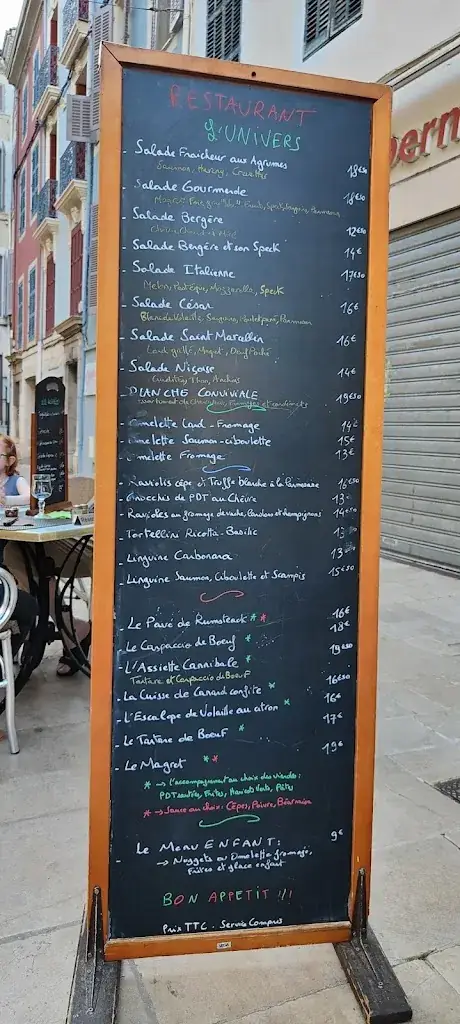 RESTAURANT
L'UNIVERS
- Salade Fraicheur aux Agrumes 18€50
Saumon, Hareng, Crevettes
- Salade Gourmande 18€50
- Salade Bergère 12€50
- Salade Bergère et son Speck 14€
- Salade Italienne 17€50
Melon, Pastèque, Mozzarella, Speck
- Salade César 16€
Blanc de Volaille, Parmesan
- Salade Saint Marcellin 16€
Lard grillé, Magret, Oeuf Poché
- Salade Niçoise 14€
Crudités, Thon, Anchois
- PLANCHE CONVIVIALE 19€50
assortiment de Charcuterie, Fromages et condiments
- Omelette Lard - Fromage 14€
- Omelette Saumon - ciboulette 15€
- Omelette Fromage 13€
- Raviolis cèpe & Truffe blanche à la Parmesane 16€50
- Gnocchis de PDT au Chèvre 13€
- Ravioles au fromage de vache, Lardons et champignons 14€50
- Tortellini Ricotta - Basilic 13
- Linguine Carbonara 13
- Linguine Saumon, Ciboulette et Scampis 15€50
- Le Pavé de Rumsteack * * 16€
- Le Carpaccio de Boeuf * 18€
- L'Assiette Cannibale * 19€50
Tartare et Carpaccio de Boeuf
- La Cuisse de Canard confite * 16€50
- L'Escalope de Volaille au citron * 16€
- Le Tartare de Boeuf * 17€
- Le Magret * * 19€
* → L'accompagnement au choix des viandes :
PDT sautées, Frites, Haricots Verts, Pâtes
* → Sauce au choix : Cèpes, Poivre, Béarnaise
- Le Menu ENFANT : 9€
→ Nuggets ou Omelette fromage,
Frites et glace enfant
BON APPETIT !!!
Prix TTC - Service Compris